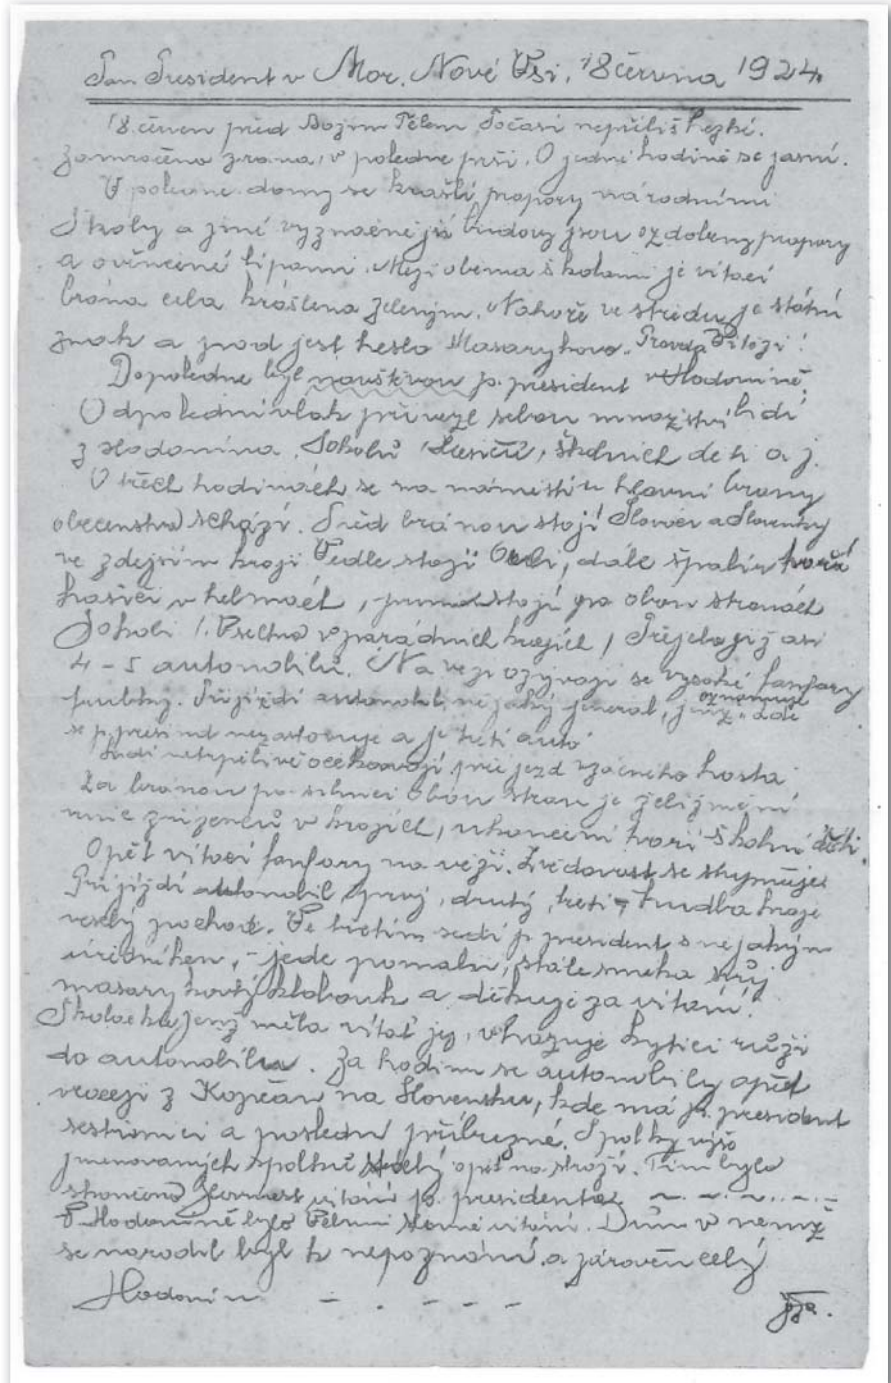 Pan President v Mor. Nové Vsi, 18 června 1924.
18. červen před Božím Tělem Počasí nepříliš hezké.
Zamračeno zrána, v poledne prší. O jedné hodině se jasní.
V poledne domy se krášlí prapory národními
Školy a jiné význačnější budovy jsou ozdobeny prapory
a ověnčené lipami. Mezi oběma školami je vítací
brána celá krášlena zeleným. Nahoře ve středu je státní
znak a pod jest heslo Masarykovo. Pravda Vítězí!
Dopoledne byl navštívou p. president v Hodoníně.
Odpolední vlak přivezl sebou množství lidí
z Hodonína, Sokolů, Hasičů, školních dětí a j.
O třech hodinách se na náměstí u hlavní brány
obecenstvo schází. Před bránou stojí Slováci a Slovenky
ve zdejším kroji Vedle stojí Orli, dále špalír tvoří
hasiči v helmách, stojí po obou stranách
Sokoli /. Všechno v parádních krojích / Přijelo již asi
4-5 automobilů. Na věži ozývají se vysoké fanfáry
trubky. Přijíždí automobil, nějaký generál, jenž oznamuje dále
se p. president nezastavuje a je třetí auto
Lidí netrpělivě očekávají příjezd vzácného hosta
Za bránou po obou stran je
v krojích, ukončení tvoří školní děti.
Opět vítací fanfáry na věži. Zvědavost se stupňuje
Přijíždí automobil, prvý, druhý, třetí - hudba hraje
veselý pochod. Ve třetím sedí p. president s nějakým
úředníkem, - jede pomalu, stále smeká svůj
masarykovský klobouk a děkuje za vítání.
Školačka jenž měla vítat jej, vhazuje kytici růží
do automobilu. Za hodinu se automobily opět
vracejí z Kopčan na Slovensku, kde má p. president
sestřenici a poslední příbuzné. Spolky výše
jmenovaných spolků opět na stráži. Tím bylo
skončeno vítání p. presidenta
V Hodoníně bylo Velmi slavné vítání. Dům v němž
se narodil byl k nepoznání a zároveň celý
Hodonín